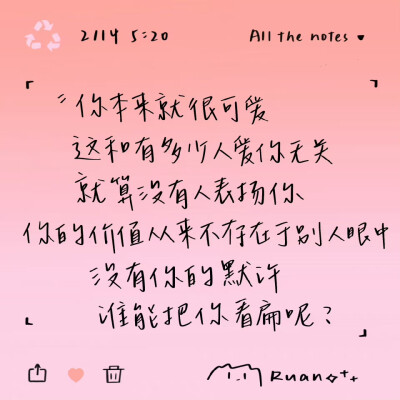 2/14 5:20
All the notes
"你本来就很可爱
这和有多少人爱你无关
就算没有人表扬你
你的价值从来不存在于别人眼中
没有你的默许
谁能把你看扁呢？
Ruan